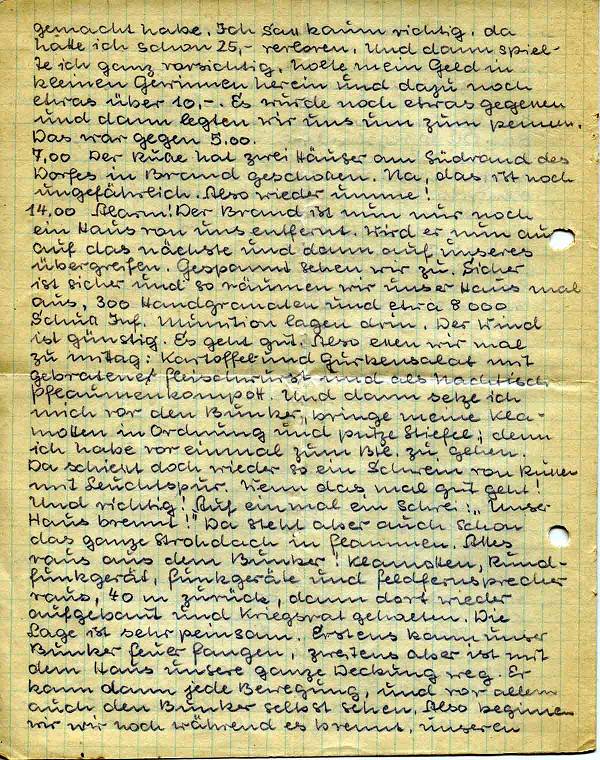 gemacht habe. Ich sass kaum richtig, da
hatte ich schon 25,- verloren. Und dann spiel-
te ich ganz vorsichtig, holte mein Geld in
kleinen Gewinnen herein und dazu noch
etwas über 10,-. Es wurde noch etwas gegessen
und dann legten wir uns um zum pennen.
Das war gegen 5.00.
7,00 Der Russe hat zwei Häuser am Südrand des
Dorfes in Brand geschossen. Na, das ist noch
ungefährlich. Also wieder umme!
14.00 Alarm! Der Brand ist nun nur noch
ein Haus von uns entfernt. Wird er nun auch
auf das nächste und dann auf unseres
übergreifen. Gespannt sehen wir zu. Sicher
ist sicher und so räumen wir unser Haus mal
aus, 300 Handgranaten und etwa 8000
Schuss Inf. Munition lagen drin. Der Wind
ist günstig. Es geht gut. Also essen wir mal
zu mittag: Kartoffel- und Gurkensalat mit
gebratener Fleischwurst und als Nachtisch
Pflaumenkompott. Und dann setze ich
mich vor den Bunker, bringe meine Kla-
motten in Ordnung und putze Stiefel, denn
ich habe vor einmal zum Btl. zu gehen.
Da schiesst doch wieder so ein Schwein von Russen
mit Leuchtspur. Wenn das mal gut geht!
Und richtig! Auf einmal ein Schrei: "Unser
Haus brennt!" Da steht aber auch schon
das ganze Strohdach in Flammen. Alles
raus aus dem Bunker! Klamotten, Rund-
funkgerät, Funkgeräte und Feldfernsprecher
raus, 40 m zurück, dann dort wieder
aufgebaut und Kriegsrat gehalten. Die
Lage ist sehr peinsam. Erstens kann unser
Bunker Feuer fangen, zweitens aber ist mit
dem Haus unsere ganze Deckung weg. Er
kann dann jede Bewegung, und vor allem
auch den Bunker selbst sehen. Also beginnen
wir wir noch während es brennt, unseren